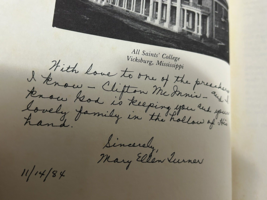 All Saints' College
Vicksburg, Mississippi
With love to one of the preachers
I know – Clifton McInnis –
know God is keeping you and your
lovely family in the hollow of His
hand.
Sincerely,
Mary Ellen Turner
11/14/84